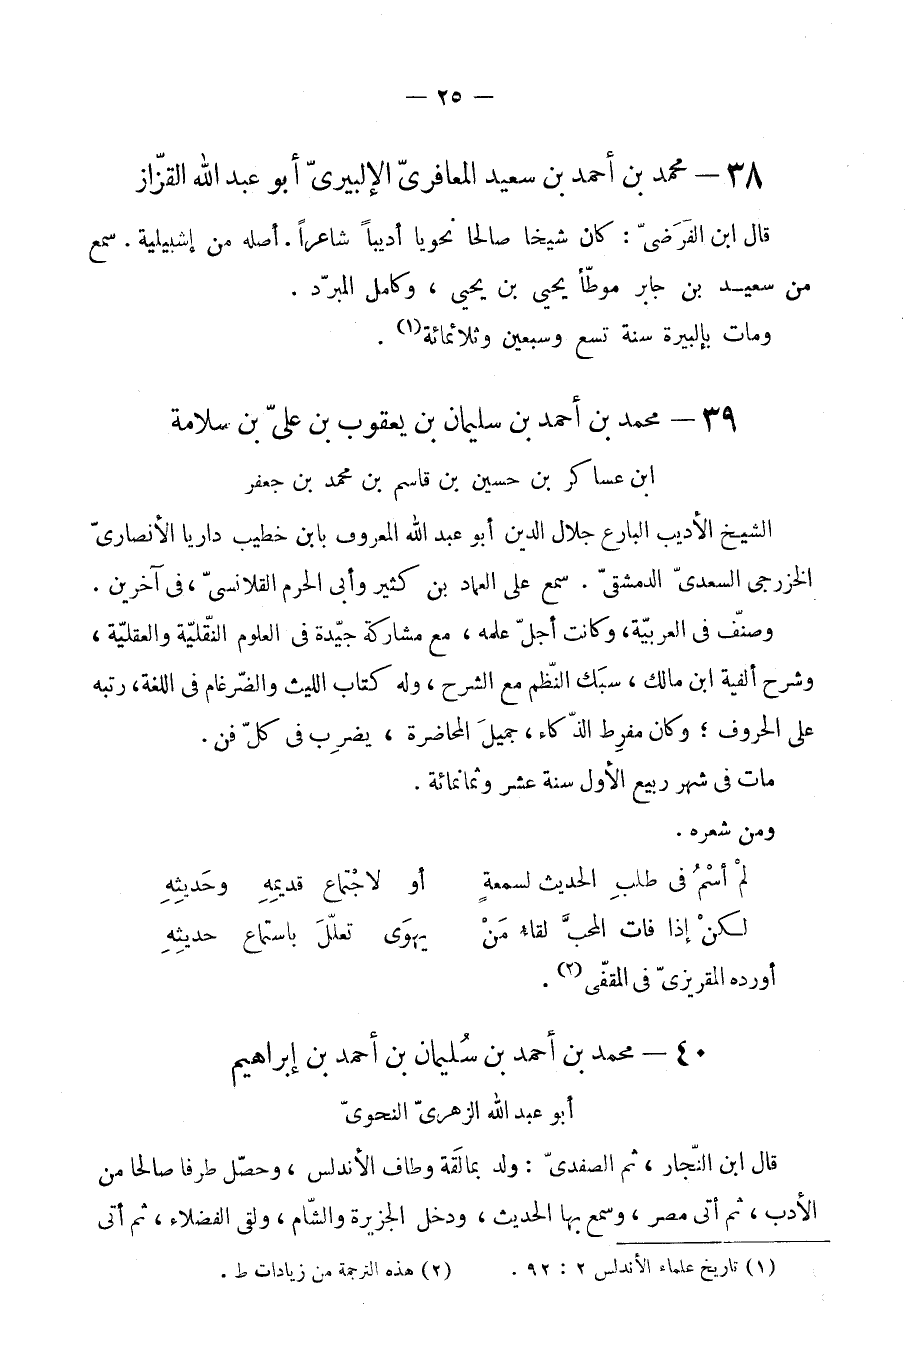 — ٢٥ —
٣٨ — محمد بن أحمد بن سعيد المعافرىّ الإلبيرىّ أبو عبد الله القزّاز
قال ابن الفَرَضىّ : كان شيخا صالحا نحويا أديباً شاعراً . أصله من إشبيلية . سمع
من سعيد بن جابر موطّأ يحيى بن يحيى ، وكامل المبرّد .
ومات بإلبيرة سنة تسع وسبعين وثلاثمائة(١) .
٣٩ — محمد بن أحمد بن سليمان بن يعقوب بن علىّ بن سلامة
ابن عساكر بن حسين بن قاسم بن محمد بن جعفر
الشيخ الأديب البارع جلال الدين أبو عبد الله المعروف بابن خطيب داريا الأنصارىّ
الخزرجى السعدىّ الدمشقىّ . سمع على العماد بن كثير وأبى الحرم القلانسىّ ، فى آخرين .
وصنّف فى العربيّة، وكانت أجلّ علمه ، مع مشاركة جيّدة فى العلوم النّقليّة والعقليّة ،
وشرح ألفية ابن مالك ، سبَك النّظم مع الشرح ، وله كتاب الليث والضّرغام فى اللغة، رتبه
على الحروف ؛ وكان مفرِط الذّكاء ، جميلَ المحاضرة ، يضرِب فى كلّ فن .
مات فى شهر ربيع الأول سنة عشر وثمانمائة .
ومن شعره .
لمْ أسْمُ فى طلبِ الحديث لسمعةٍ أو لاجْتماع قديمِهِ وحَديثِهِ
لكنْ إذا فات المحبَّ لقاء مَنْ يهوَى تعلّلَ باستماع حديثِهِ
أورده المقريزىّ فى المقفّى(٢) .
٤٠ — محمد بن أحمد بن سُليمان بن أحمد بن إبراهيم
أبو عبد الله الزهرىّ النحوىّ
قال ابن النّجار ، ثم الصفدىّ : ولد بمالَقة وطاف الأندلس ، وحصّل طرفا صالحا من
الأدب ، ثم أتى مصر ، وسمع بها الحديث ، ودخل الجزيرة والشّام ، ولقى الفضلاء ، ثم أتى
(١) تاريخ علماء الأندلس ٢ : ٩٢ . (٢) هذه الترجمة من زيادات ط .